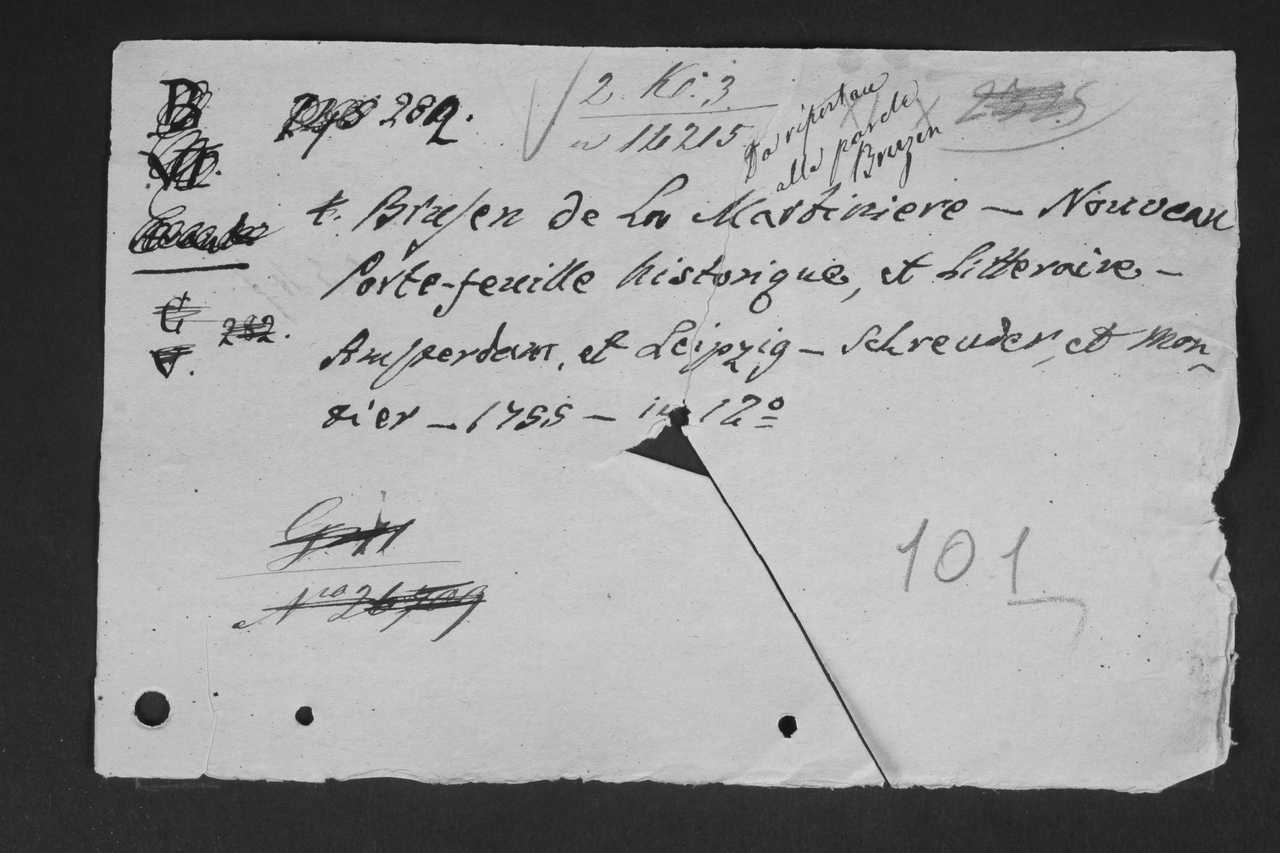 B
282.
2. Ki. 3
n 14215
Da riportare
alla parola
Bruzen
t. Brusen de La Martiniere — Nouveau
Porte-feuille historique, et Litteraire —
Amsterdam, et Leipzig — Schreuder, et Mor-
tier — 1755 — in 12º
C 282.
V.
Nro 26709
101